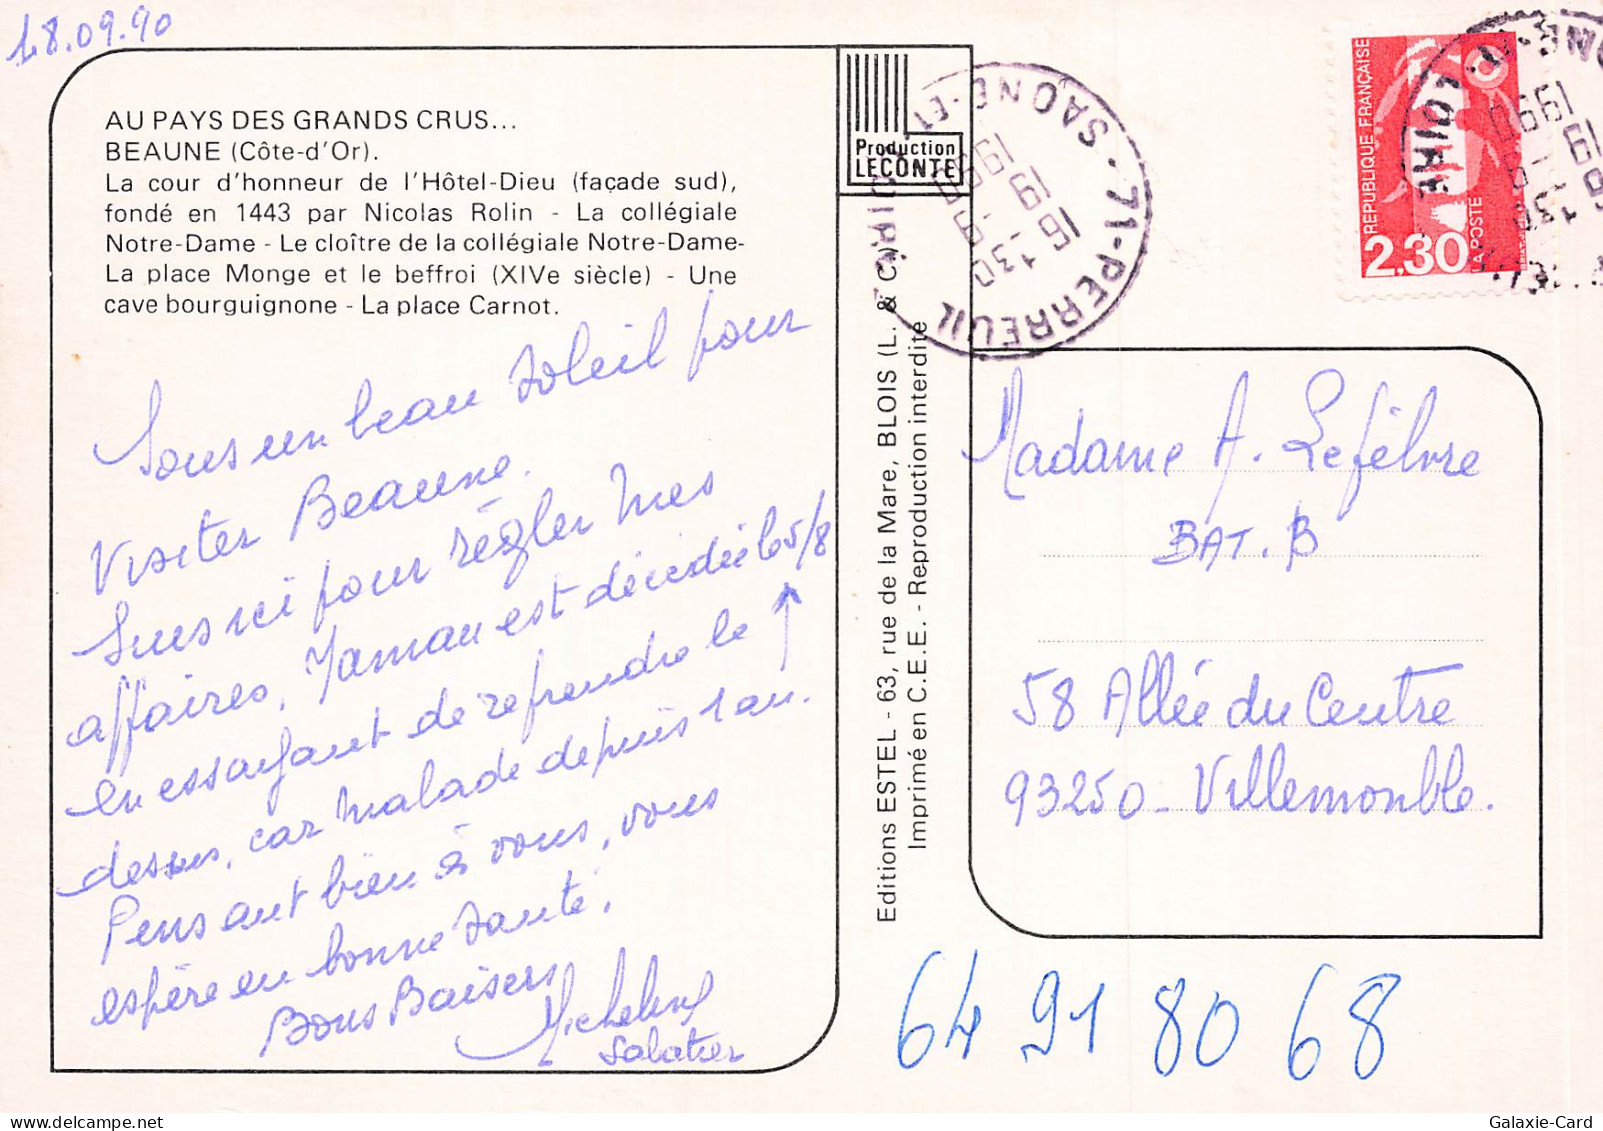 18.09.90
AU PAYS DES GRANDS CRUS...
BEAUNE (Côte-d'Or).
La cour d'honneur de l'Hôtel-Dieu (façade sud),
fondé en 1443 par Nicolas Rolin - La collégiale
Notre-Dame - Le cloître de la collégiale Notre-Dame-
La place Monge et le beffroi (XIVe siècle) - Une
cave bourguignone - La place Carnot.
Sous un beau soleil pour
visiter Beaune.
Suis ici pour régler mes
affaires, Maman est décédée le 5/8
en essayant de reprendre le
dessus, car malade depuis 1 an.
Pensant bien à vous, vous
espère en bonne santé.
Bons Baisers
Micheline
Sabatier
Production
LECONTE
Editions ESTEL - 63, rue de la Mare, BLOIS (L. & C.)
Imprimé en C.E.E. - Reproduction interdite
71-PERREUIL
SAONE-ET
130
19
1990
REPUBLIQUE FRANÇAISE
LA POSTE
2,30
Madame A. Lefèbvre
BAT. B
58 Allée du Centre
93250 - Villemonble.
64 91 80 68
Galaxie-Card